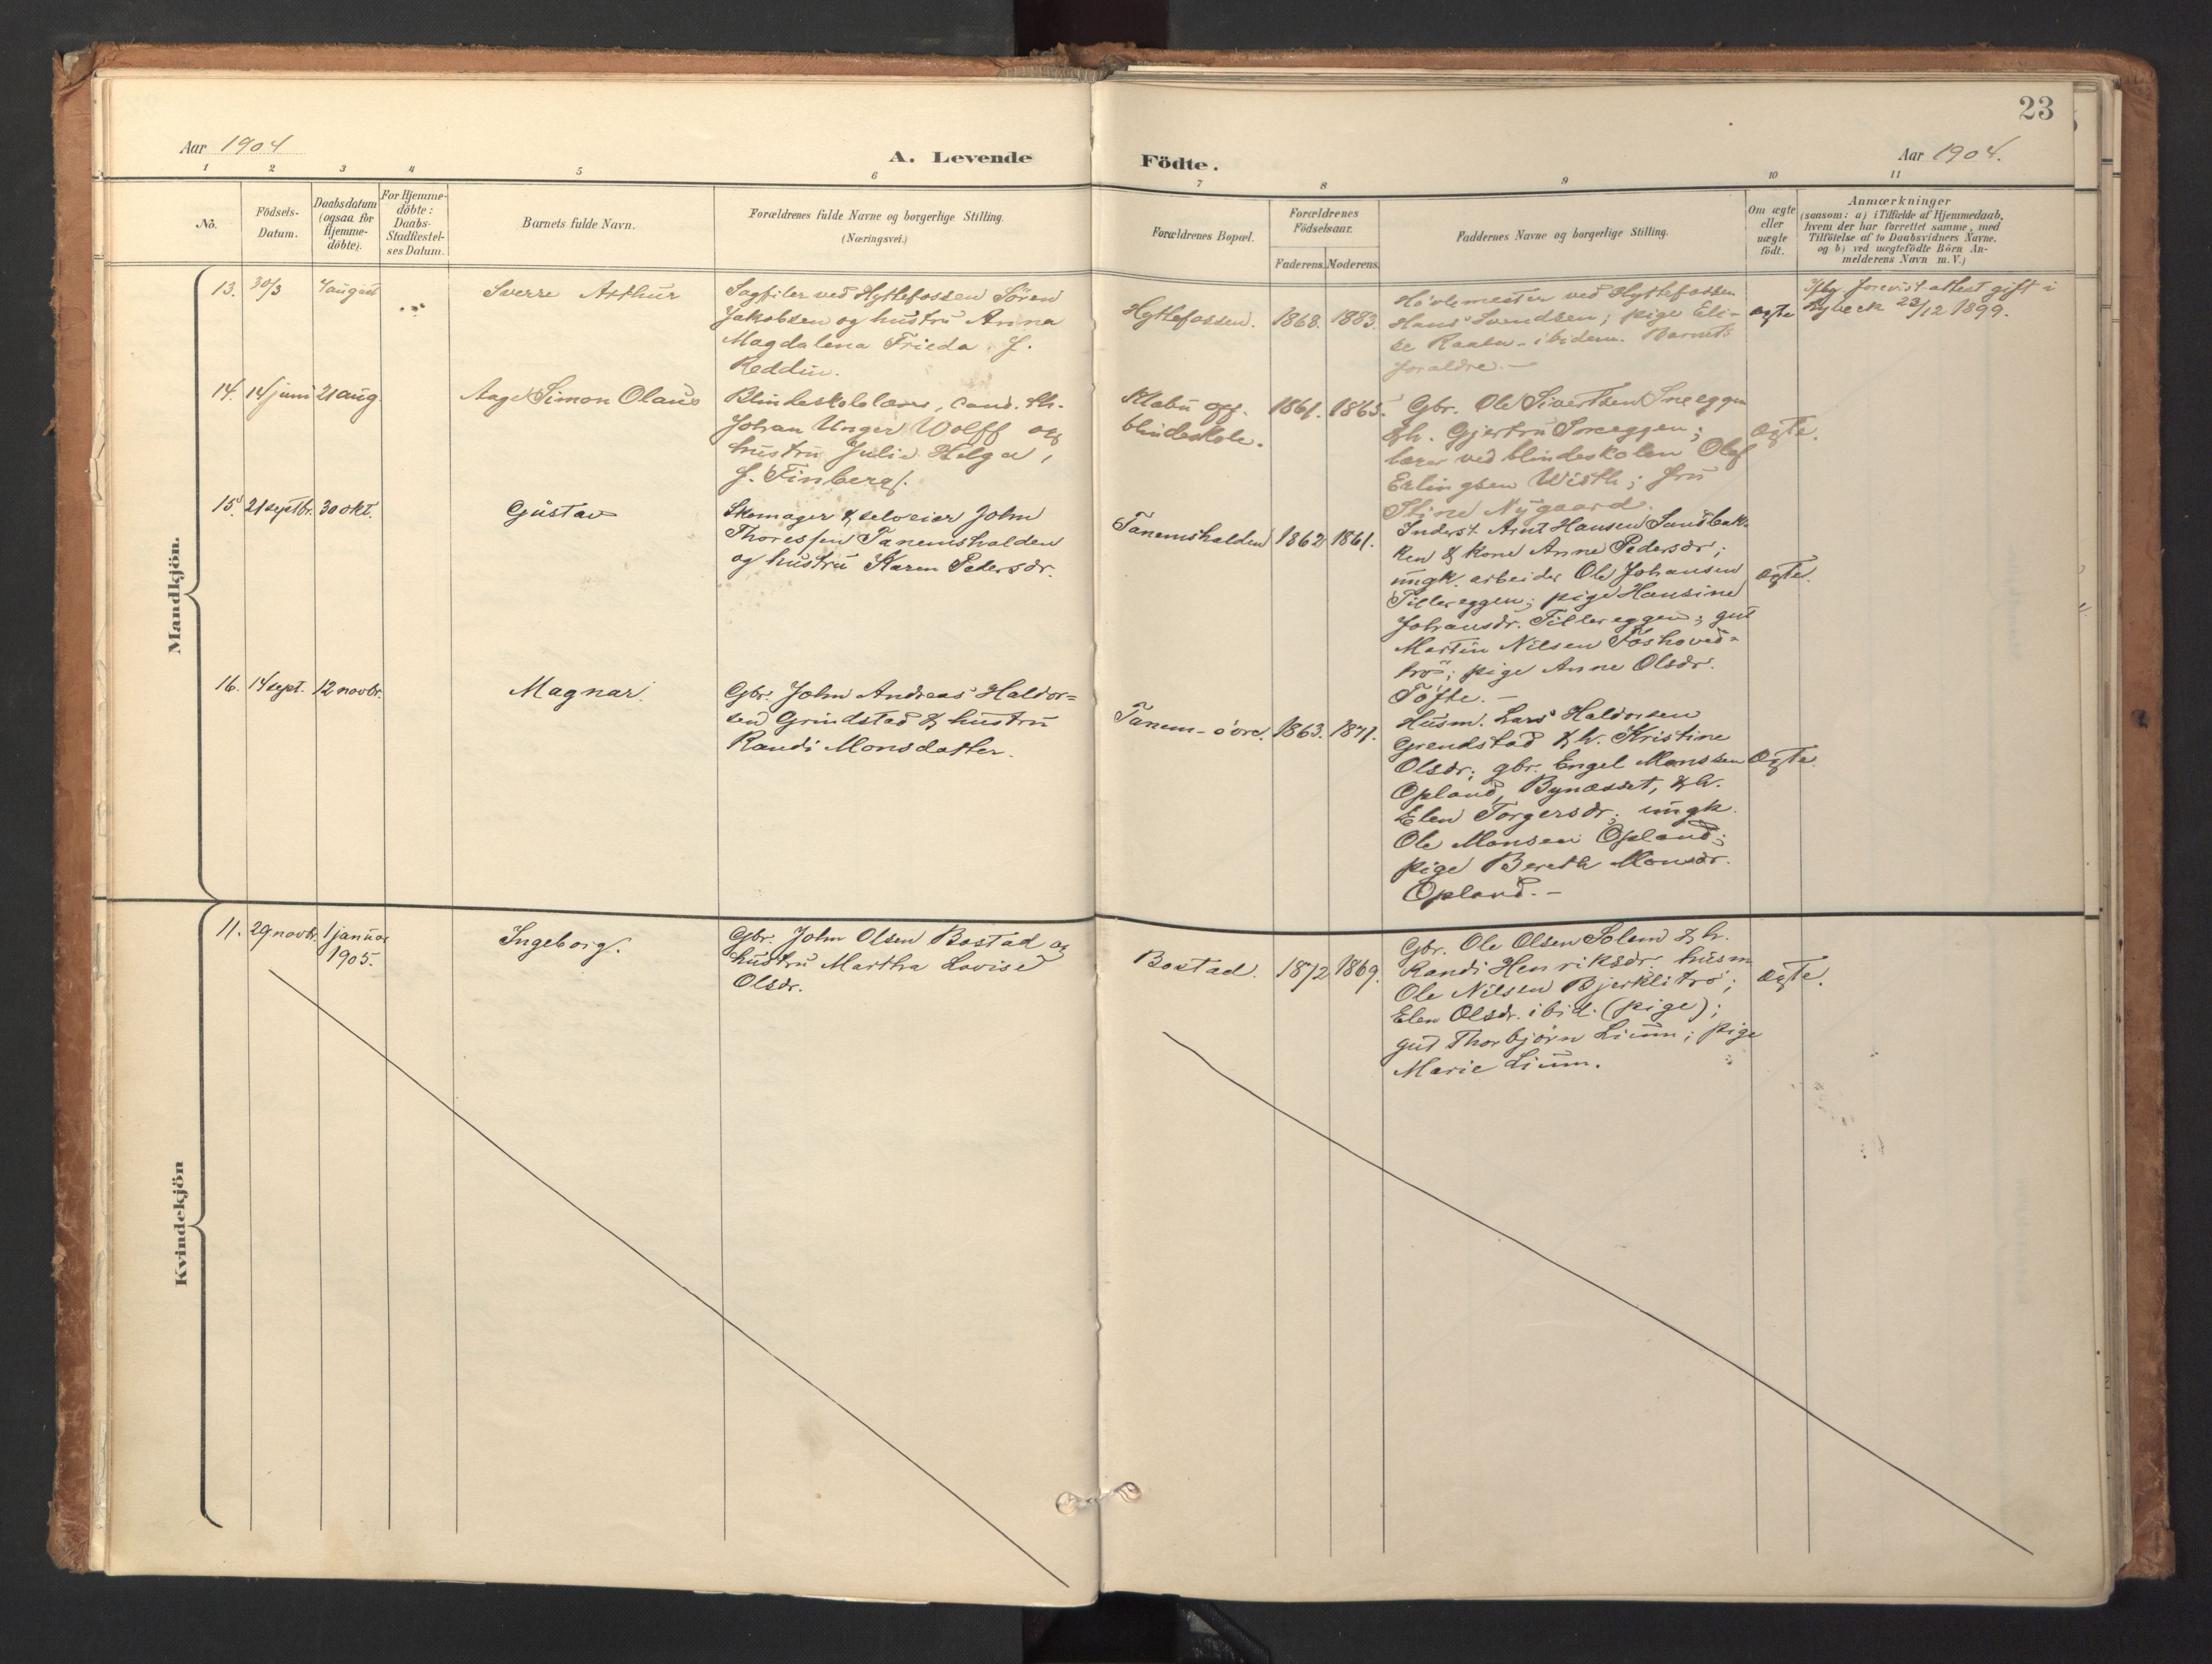 23
Aar 1904
A. Levende
Födte.
Aar 1904.
1 2 3 4 5 6
7 8 9 10 11
No.
Födsels-
Datum.
Daabsdatum
(ogsaa for
Hjemme-
döbte).
For Hjemme-
döbte:
Daabs-
Stadfæstel-
ses Datum.
Barnets fulde Navn.
Forældrenes fulde Navne og borgerlige Stilling.
(Næringsvei.)
Forældrenes Bopæl.
Forældrenes
Födselsaar.
Faderens. Moderens.
Faddernes Navne og borgerlige Stilling.
Om ægte
eller
uægte
födt.
Anmærkninger
(saasom: a) i Tilfælde af Hjemmedaab,
hvem der har forrettet samme, med
Tilföielse af to Daabsvidners Navne.
og b) ved uægtefödte Börn An-
melderens Navn m. V.)
Mandkjön.
13. 30/3 4 august
Sverre Arthur
Sagfiler ved Hyttefossen Sören
Jakobsen og hustru Anna
Magdalena Frieda f.
Reddin.
Hyttefossen. 1868. 1883.
Hövlemester ved Hyttefossen
Hans Svendsen; pige Eli-
se Raaen - ibidem. Barnets
foraldre. -
ægte
forevist attest gift i
Lybeck 23/12 1899.
14. 14 juni 21 aug.
Aage Simon Olaus
Blindeskolelærer, cand. th.
Johan Unger Wolff og
hustru Julie Helga,
f. Finberg.
Klæbu off.
blindeskole.
1861. 1865.
Gbr. Ole Sivertsen Sneeggen
& h. Gjertru Sneeggen;
lærer ved blindeskolen Olaf
Erlingsen Wisth; fru
Stine Nygaard.
ægte.
15. 21 septbr. 30 okt.
Gustav
Skomager & selveier John
Thoressen Tanemshalden
og hustru Karen Pedersdr.
Tanemshalden 1862 1861.
Inderst Arnt Hansen Sandbak-
ken & kone Anne Pedersdr;
ungk. arbeider Ole Johansen
Tillereggen; pige Hansine
Johansdr. Tillereggen; gut
Martin Nilsen Foshoved-
trö; pige Anne Olsdr.
Töfte. -
ægte.
16. 14 sept. 12 novbr.
Magnar.
Gbr. John Andreas Haldor-
sen Grindstad & hustru
Randi Monsdatter.
Tanem - övre. 1863. 1871.
Husm. Lars Haldorsen
Grendstad & h. Kristine
Olsdr; gbr. Engel Monssen
Opland, Bynæsset, & h.
Elen Torgersdr; ungk.
Ole Monsen Opland;
pige Bereth Monsdr.
Opland. -
ægte.
Kvindekjön
11. 29 novbr. 1 januar
1905.
Ingeborg.
Gbr. John Olsen Bostad og
hustru Martha Lovise
Olsdr.
Bostad. 1872 1869.
Gbr. Ole Olsen Solem & h.
Randi Henriksdr husm
Ole Nilsen Bjerklitrö;
Elen Olsdr. ibid. (pige);
gut Thorbjörn Lium; pige
Marie Lium.
ægte.